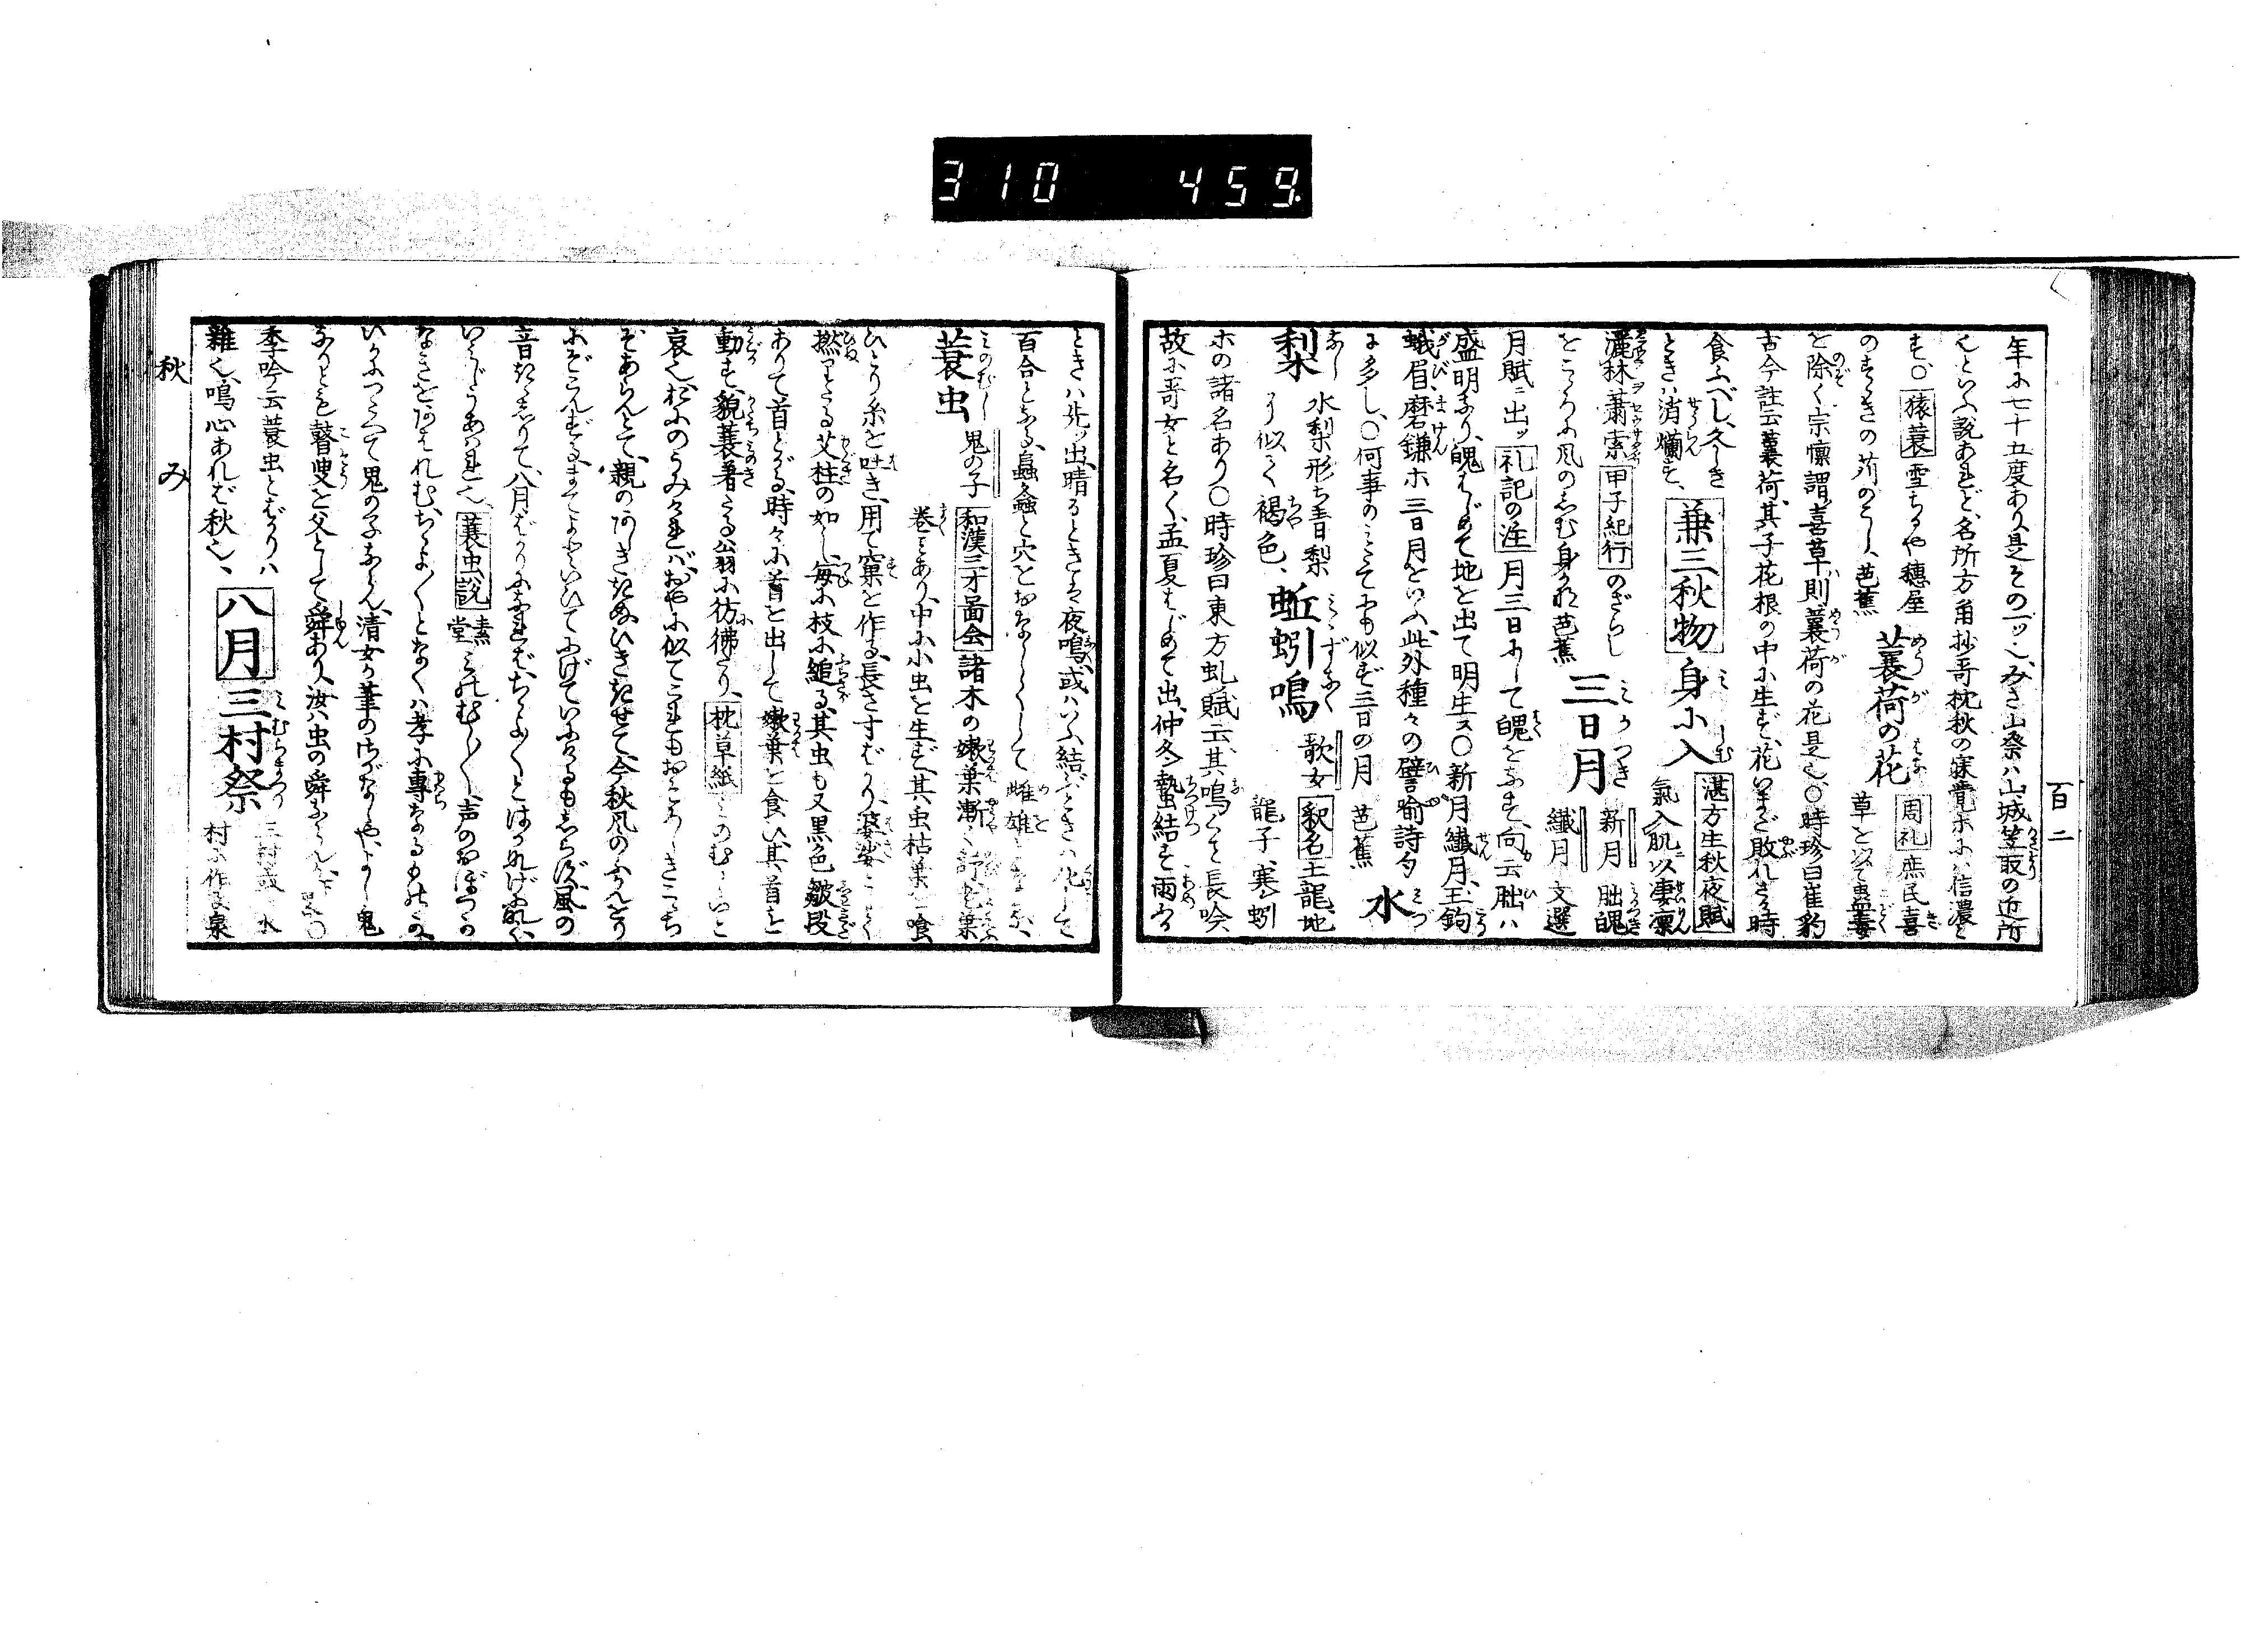 310 459
百二
年に七十五度あり是その一ッ也みさ山祭ハ山城笠取の近所
也といふ説あれど名所方角抄哥枕秋の寐覚ホにハ信濃と
す〇猿蓑 雪ちるや穂屋
のすゝきの苅のこし 芭蕉
蘘荷の花 周礼 庶民喜
草を以て蠱毒
を除く宗懍謂喜草則蘘荷の花是也〇時珍曰崔豹
古今註云蘘荷其子花根の中に生ず花いまだ敗れざる時
食ふべし久しき
ときハ消爛す
兼三秋物
身に入 湛方生秋夜賦
氣入肌以凄凛
灑林蕭索 甲子紀行 のざらし
をこゝろに風のしむ身かな 芭蕉
三日月 新月 朏魄
繊月 文選
月賦ニ出ッ 礼記の注 月三日にして魄をなす向云朏ハ
盛明なり魄はじめて地を出て明生ス〇新月繊月玉鉤
蛾眉磨鎌ホ三日月をいふ此外種々の譬喩詩夕
に多し〇何事の見たてにも似ず三日の月 芭蕉
水
梨 水梨形ち青梨
より似く褐色
蚯蚓鳴 歌女 釈名 王龍地
龍子寒蚓
ホの諸名あり〇時珍曰東方虬賦云其鳴く長吟
故に哥女と名く孟夏はじめて出仲冬蟄結す雨ふる
ときハ先ッ出晴るときは夜鳴或ハいふ結ぶときハ化して
百合となる螽と穴をおなじくして雌雄となる
蓑虫 鬼の子 和漢三才圖会 諸木の嫩葉漸く舒老葉
巻にあり中に小虫を生ず其虫枯葉を喰
ひとり糸を吐き用て窠を作る長さ寸ばかり婆娑として
撚りたる艾炷の如し毎に枝に縋る其虫も又黒色皺段
ありて首とがる時々に首を出して嫩葉を食ハ其首を
動す貌蓑着たる翁に彷彿たり 枕草紙 みのむしいと
哀也おにのうみければおやに似てこれもおそろしきこゝち
ぞあらんとて親のあしききぬひききせて今秋風のふかんをり
にぞこんずるまてよといひてにげていにけるもしらず風の
音きゝしりて八月ばかりになればちゝよ〳〵とはかなげに鳴く
いみじうあはれ也 蓑虫説 素堂 みのむし〳〵声のおぼつか
なきをあはれむちゝよ〳〵となくハ孝に専なるものか
いかにつたへて鬼の子なるらん清女が筆のさがなしやよし鬼
なりとも瞽叟を父として舜あり汝ハ虫の舜ならんか下略〇
季吟云蓑虫とばかりハ
雑也鳴心あれば秋也
八月 三村祭 三村或ハ水
村に作る泉
秋
み